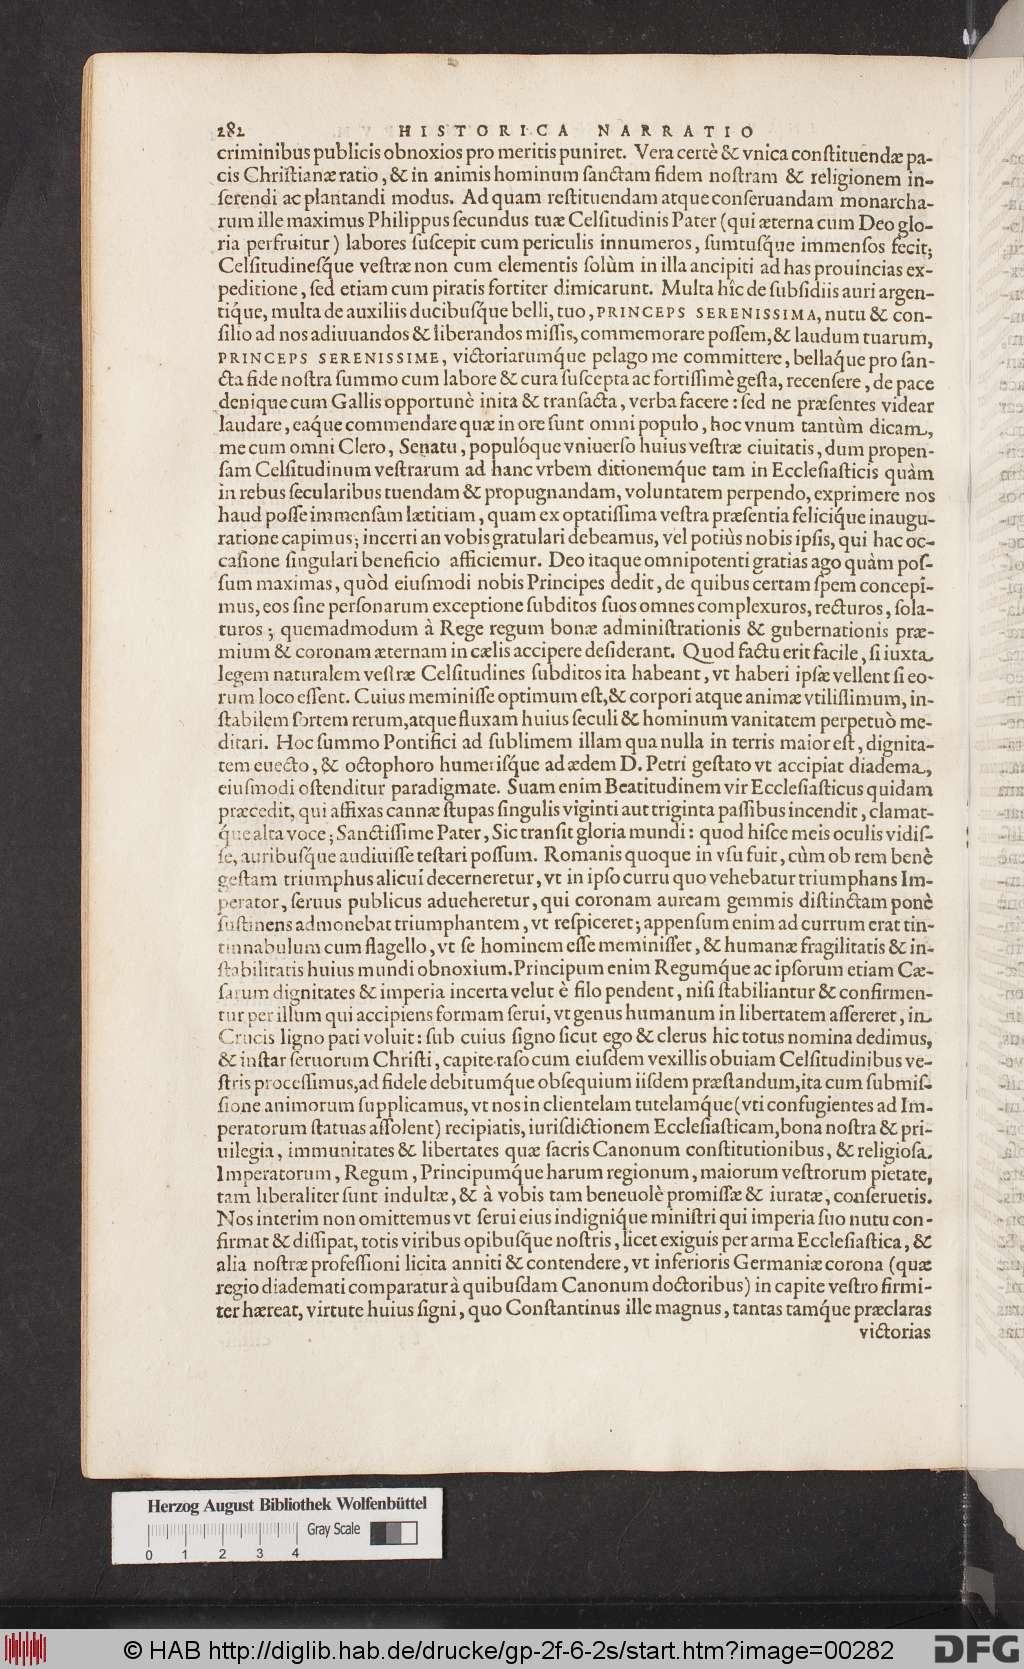 282 HISTORICA NARRATIO
criminibus publicis obnoxios pro meritis puniret. Vera certè & vnica conſtituendæ pa-
cis Chriſtianæ ratio, & in animis hominum ſanctam fidem noſtram & religionem in-
ſerendi ac plantandi modus. Ad quam reſtituendam atque conſeruandam monarcha-
rum ille maximus Philippus ſecundus tuæ Celſitudinis Pater (qui æterna cum Deo glo-
ria perfruitur) labores ſuſcepit cum periculis innumeros, ſumtuſq́ue immenſos fecit;
Celſitudineſq́ue veſtræ non cum elementis ſolùm in illa ancipiti ad has prouincias ex-
peditione, ſed etiam cum piratis fortiter dimicarunt. Multa hîc de ſubſidiis auri argen-
tiq́ue, multa de auxiliis ducibuſq́ue belli, tuo, PRINCEPS SERENISSIMA, nutu & con-
ſilio ad nos adiuuandos & liberandos miſſis, commemorare poſſem, & laudum tuarum,
PRINCEPS SERENISSIME, victoriarumq́ue pelago me committere, bellaq́ue pro ſan-
cta fide noſtra ſummo cum labore & cura ſuſcepta ac fortiſſimè geſta, recenſere, de pace
denique cum Gallis opportunè inita & tranſacta, verba facere: ſed ne præſentes videar
laudare, eaq́ue commendare quæ in ore ſunt omni populo, hoc vnum tantùm dicam,
me cum omni Clero, Senatu, populóque vniuerſo huius veſtræ ciuitatis, dum propen-
ſam Celſitudinum veſtrarum ad hanc vrbem ditionemq́ue tam in Eccleſiaſticis quàm
in rebus ſecularibus tuendam & propugnandam, voluntatem perpendo, exprimere nos
haud poſſe immenſam lætitiam, quam ex optatiſſima veſtra præſentia feliciq́ue inaugu-
ratione capimus; incerti an vobis gratulari debeamus, vel potiùs nobis ipſis, qui hac oc-
caſione ſingulari beneficio afficiemur. Deo itaque omnipotenti gratias ago quàm poſ-
ſum maximas, quòd eiuſmodi nobis Principes dedit, de quibus certam ſpem concepi-
mus, eos ſine perſonarum exceptione ſubditos ſuos omnes complexuros, recturos, ſola-
turos; quemadmodum à Rege regum bonæ adminiſtrationis & gubernationis præ-
mium & coronam æternam in cælis accipere deſiderant. Quod factu erit facile, ſi iuxta
legem naturalem veſtræ Celſitudines ſubditos ita habeant, vt haberi ipſæ vellent ſi eo-
rum loco eſſent. Cuius meminiſſe optimum eſt, & corpori atque animæ vtiliſſimum, in-
ſtabilem ſortem rerum, atque fluxam huius ſeculi & hominum vanitatem perpetuò me-
ditari. Hoc ſummo Pontifici ad ſublimem illam qua nulla in terris maior eſt, dignita-
tem euecto, & octophoro humeriſq́ue ad ædem D. Petri geſtato vt accipiat diadema,
eiuſmodi oſtenditur paradigmate. Suam enim Beatitudinem vir Eccleſiaſticus quidam
præcedit, qui affixas cannæ ſtupas ſingulis viginti aut triginta paſſibus incendit, clamat-
q́ue alta voce; Sanctiſſime Pater, Sic tranſit gloria mundi: quod hiſce meis oculis vidiſ-
ſe, auribuſq́ue audiuiſſe teſtari poſſum. Romanis quoque in vſu fuit, cùm ob rem benè
geſtam triumphus alicui decerneretur, vt in ipſo curru quo vehebatur triumphans Im-
perator, ſeruus publicus adueheretur, qui coronam auream gemmis diſtinctam ponè
ſuſtinens admonebat triumphantem, vt reſpiceret; appenſum enim ad currum erat tin-
tinnabulum cum flagello, vt ſe hominem eſſe meminiſſet, & humanæ fragilitatis & in-
ſtabilitatis huius mundi obnoxium. Principum enim Regumq́ue ac ipſorum etiam Cæ-
ſarum dignitates & imperia incerta velut è filo pendent, niſi ſtabiliantur & confirmen-
tur per illum qui accipiens formam ſerui, vt genus humanum in libertatem aſſereret, in
Crucis ligno pati voluit: ſub cuius ſigno ſicut ego & clerus hic totus nomina dedimus,
& inſtar ſeruorum Chriſti, capite raſo cum eiuſdem vexillis obuiam Celſitudinibus ve-
ſtris proceſſimus, ad fidele debitumq́ue obſequium iiſdem præſtandum, ita cum ſubmiſ-
ſione animorum ſupplicamus, vt nos in clientelam tutelamq́ue (vti confugientes ad Im-
peratorum ſtatuas aſſolent) recipiatis, iurisdictionem Eccleſiaſticam, bona noſtra & pri-
uilegia, immunitates & libertates quæ ſacris Canonum conſtitutionibus, & religioſa
Imperatorum, Regum, Principumq́ue harum regionum, maiorum veſtrorum pietate,
tam liberaliter ſunt indultæ, & à vobis tam beneuolè promiſſæ & iuratæ, conſeruetis.
Nos interim non omittemus vt ſerui eius indigniq́ue miniſtri qui imperia ſuo nutu con-
firmat & diſſipat, totis viribus opibuſq́ue noſtris, licet exiguis per arma Eccleſiaſtica, &
alia noſtræ profeſſioni licita anniti & contendere, vt inferioris Germaniæ corona (quæ
regio diademati comparatur à quibuſdam Canonum doctoribus) in capite veſtro firmi-
ter hæreat, virtute huius ſigni, quo Conſtantinus ille magnus, tantas tamq́ue præclaras
victorias
Herzog August Bibliothek Wolfenbüttel
Gray Scale
0 1 2 3 4
© HAB http://diglib.hab.de/drucke/gp-2f-6-2s/start.htm?image=00282
DFG